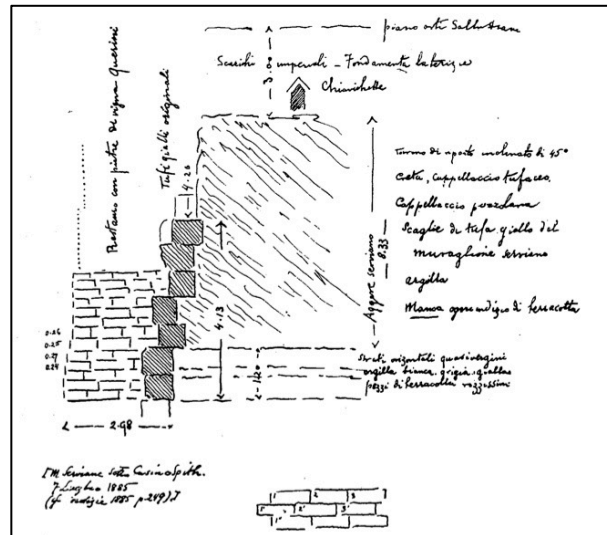 piano orti Sallustiani
Scarichi imperiali _ Fondamenta laterizie
Chiavichette
3.00
Restauro con pietre di vigna Querini
Tufi gialli originali
4.26
Terreno di riporto inclinato di 45°
Creta, Cappellaccio tufaceo,
Cappellaccio pozzolana
Scaglie di tufa giallo del
muraglione serviano
argilla
Manca ogni indizio di terracotta
Aggere serviano
8.33
4.13
0.26
0.25
0.27
0.24
1.20
Strati orizontali quasi vergini
argilla bianca, grigia, gialla
pezzi di terracotta rozzissimi
2.98
[M Serviane sotto Casino Spith.
7 Luglio 1885
(cf notizie 1885 p. 249)]
1 2 3
1' 2' 3'
1"